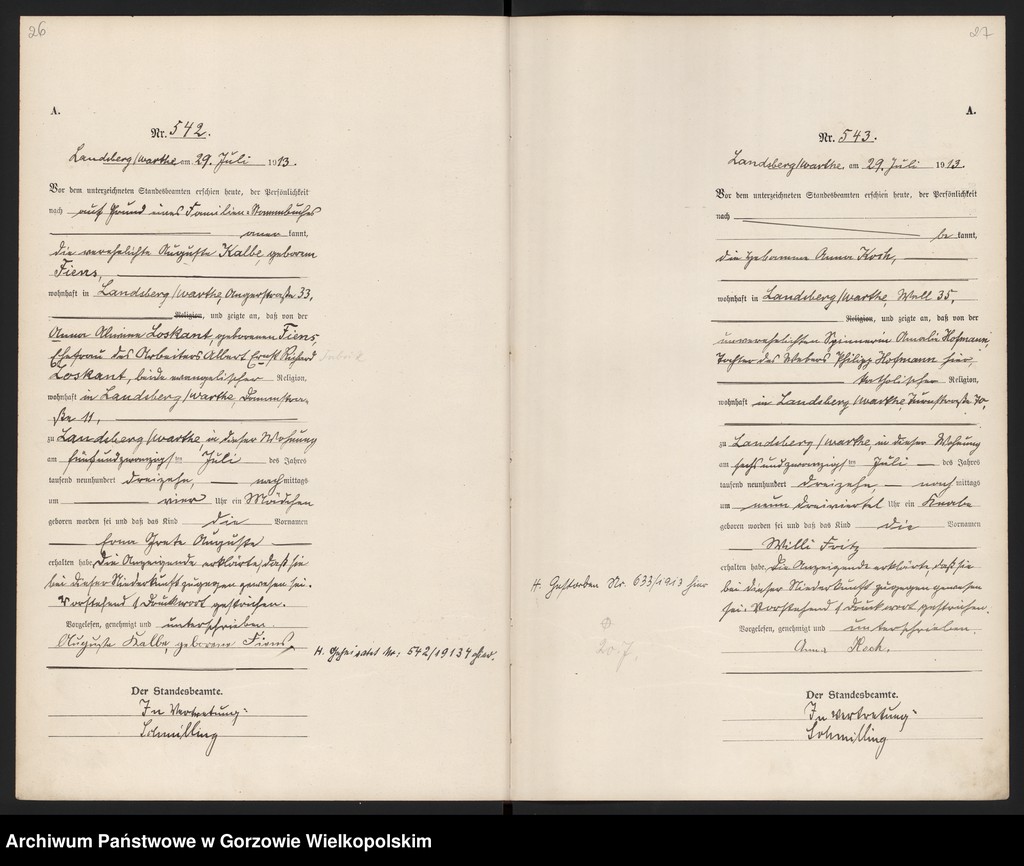 26
A.
Nr. 542.
Landsberg/Warthe am 29. Juli 1913.
Vor dem unterzeichneten Standesbeamten erschien heute, der Persönlichkeit
nach auf Grund eines Familien-Stammbuches
aner kannt,
die verehelichte Auguste Kalbe, geborene
Fiens,
wohnhaft in Landsberg/Warthe, Angerstraße 33,
Religion, und zeigte an, daß von der
Anna Loskant, geborenen Fiens,
Ehefrau des Arbeiters Albert Ernst Richard
Loskant, beide evangelischer Religion,
wohnhaft in Landsberg/Warthe, Dammstra-
ße 11,
zu Landsberg/Warthe, in dieser Wohnung
am fünfundzwanzigsten Juli des Jahres
tausend neunhundert dreizehn, nachmittags
um vier Uhr ein Mädchen
geboren worden sei und daß das Kind die Vornamen
Erna Grete Auguste
erhalten habe. Die Anzeigende erklärte, daß sie
bei dieser Niederkunft zugegen gewesen sei.
Vorstehend 1 Druckwort gestrichen.
Vorgelesen, genehmigt und unterschrieben.
Auguste Kalbe, geborene Fiens.
H. Geheiratet Nr. 542/1934 hier.
Der Standesbeamte.
In Vertretung:
Schmilling
27
A.
Nr. 543.
Landsberg/Warthe, am 29. Juli 1913.
Vor dem unterzeichneten Standesbeamten erschien heute, der Persönlichkeit
nach
be kannt,
die Hebamme Anna Koch,
wohnhaft in Landsberg/Warthe, Wall 35,
Religion, und zeigte an, daß von der
unverehelichten Spinnerin Amalie Hofmann,
Tochter des Webers Philipp Hofmann hier,
katholischer Religion,
wohnhaft in Landsberg/Warthe, Turnstraße 70,
zu Landsberg/Warthe, in dieser Wohnung
am sechsundzwanzigsten Juli des Jahres
tausend neunhundert dreizehn, nachmittags
um neun dreiviertel Uhr ein Knabe
geboren worden sei und daß das Kind die Vornamen
Willi Fritz
erhalten habe. Die Anzeigende erklärte, daß sie
bei dieser Niederkunft zugegen gewesen
sei. Vorstehend 1 Druckwort gestrichen.
Vorgelesen, genehmigt und unterschrieben.
Anna Koch.
H. Gestorben Nr. 633/1913 hier
20.7.
Der Standesbeamte.
In Vertretung:
Schmilling
Archiwum Państwowe w Gorzowie Wielkopolskim